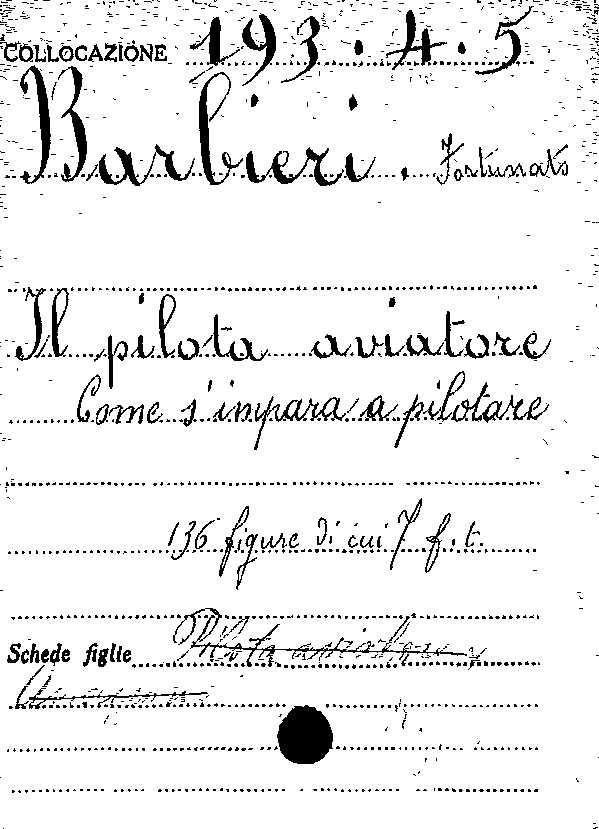 COLLOCAZIONE 193.4.5
Barbieri. Fortunato
Il pilota aviatore
Come s'impara a pilotare
136 figure di cui 7 f.t.
Schede figlie Pilota aviatore